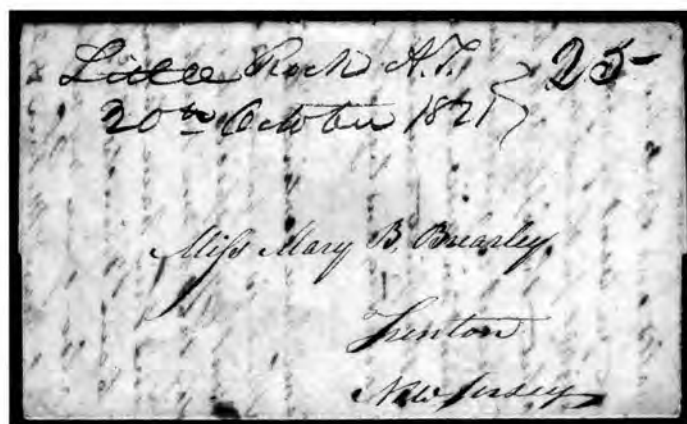 Little Rock A.T. } 25
20th October 1821
Miss Mary B. Brearley
Trenton
New Jersey